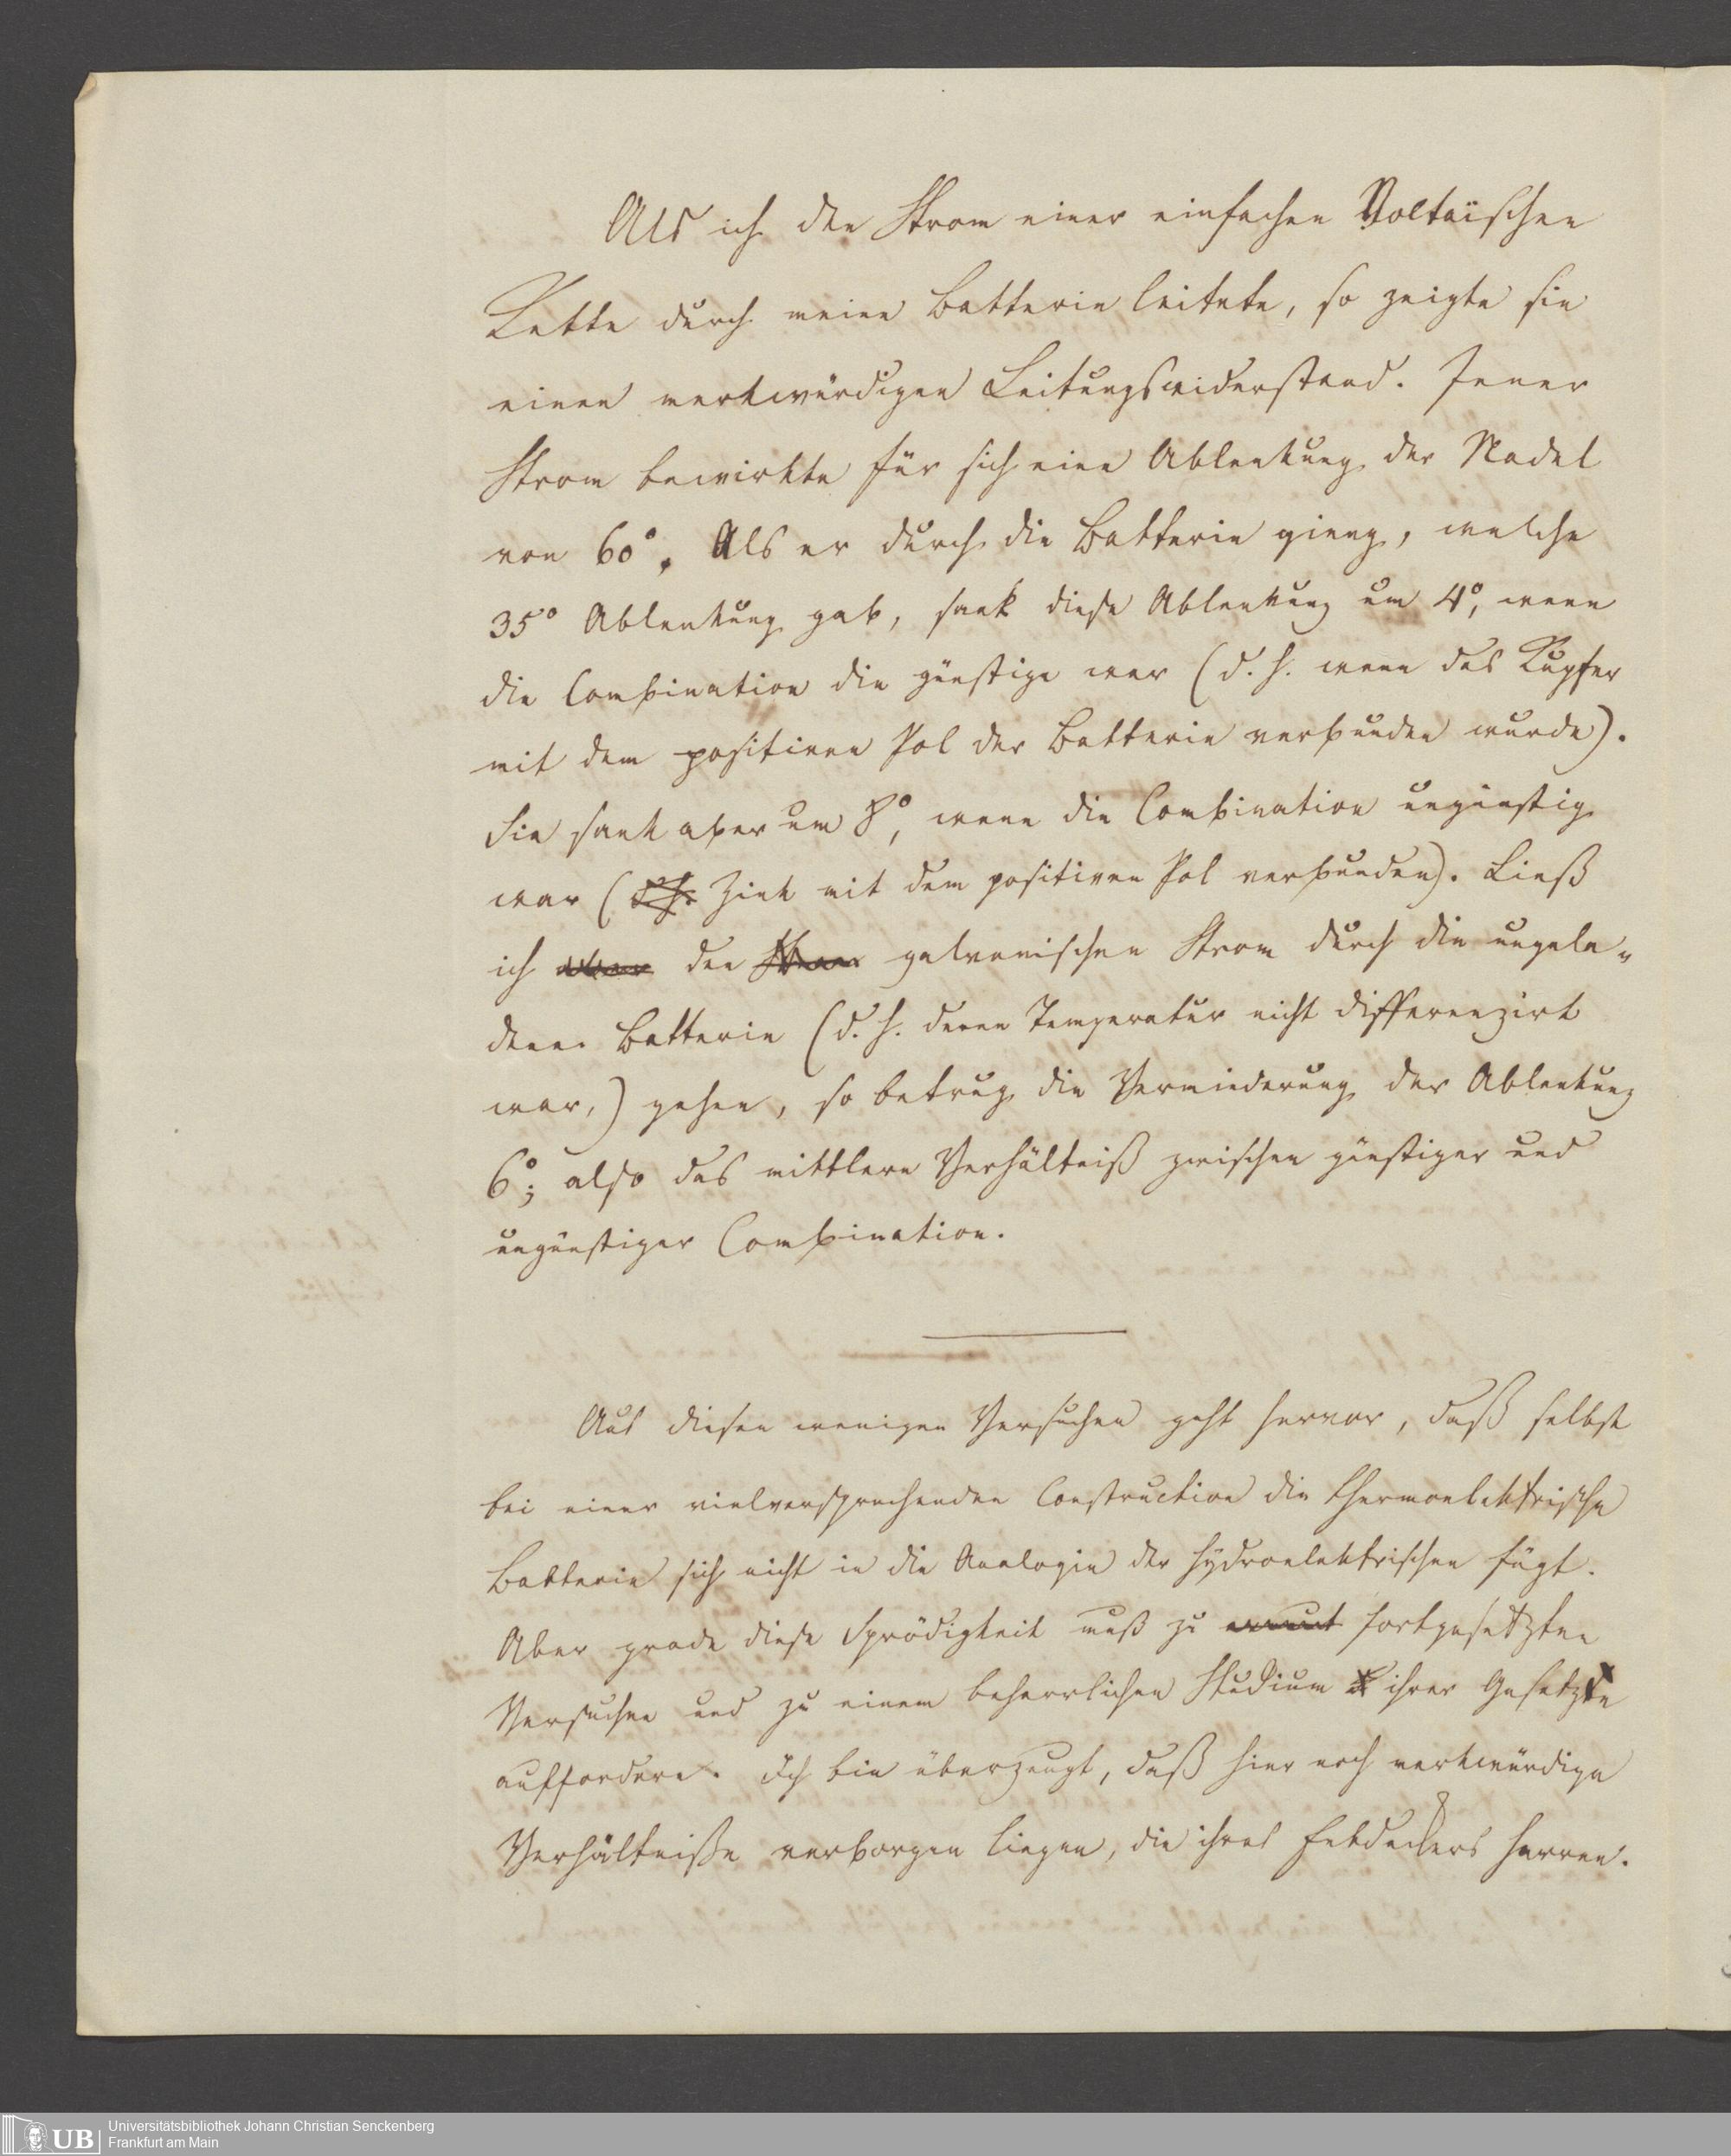 Als ich den Strom einer einfachen Voltaischen
Kette durch meine Batterie leitete, so zeigte sie
einen merkwürdigen Leitungswiderstand. Jener
Strom bewirkte für sich eine Ablenkung der Nadel
von 60°. Als er durch die Batterie gieng, welche
35° Ablenkung gab, sank diese Ablenkung um 4°, wenn
die Combination die günstige war (d. h. wenn das Kupfer
mit dem positiven Pol der Batterie verbunden wurde).
Sie sank aber um 8°, wenn die Combination ungünstig
war (d. h. Zink mit dem positiven Pol verbunden). Ließ
ich aber den Strom galvanischen Strom durch die ungela„
dene Batterie (d. h. deren Temperatur nicht differenzirt
war,) gehen, so betrug die Verminderung der Ablenkung
6°; also das mittlere Verhältniß zwischen günstiger und
ungünstiger Combination.
Aus diesen wenigen Versuchen geht hervor, daß selbst
bei einer vielversprechenden Construction die thermoelektrische
Batterie sich nicht in die Analogie der hydroelektrischen fügt.
Aber grade diese Sprödigkeit muß zu erneut fortgesetzten
Versuchen und zu einem beharrlichen Studium ihrer Gesetze
auffordern. Ich bin überzeugt, daß hier noch merkwürdige
Verhältniße verborgen liegen, die ihres Entdeckers harren.
Universitätsbibliothek Johann Christian Senckenberg
Frankfurt am Main
UB